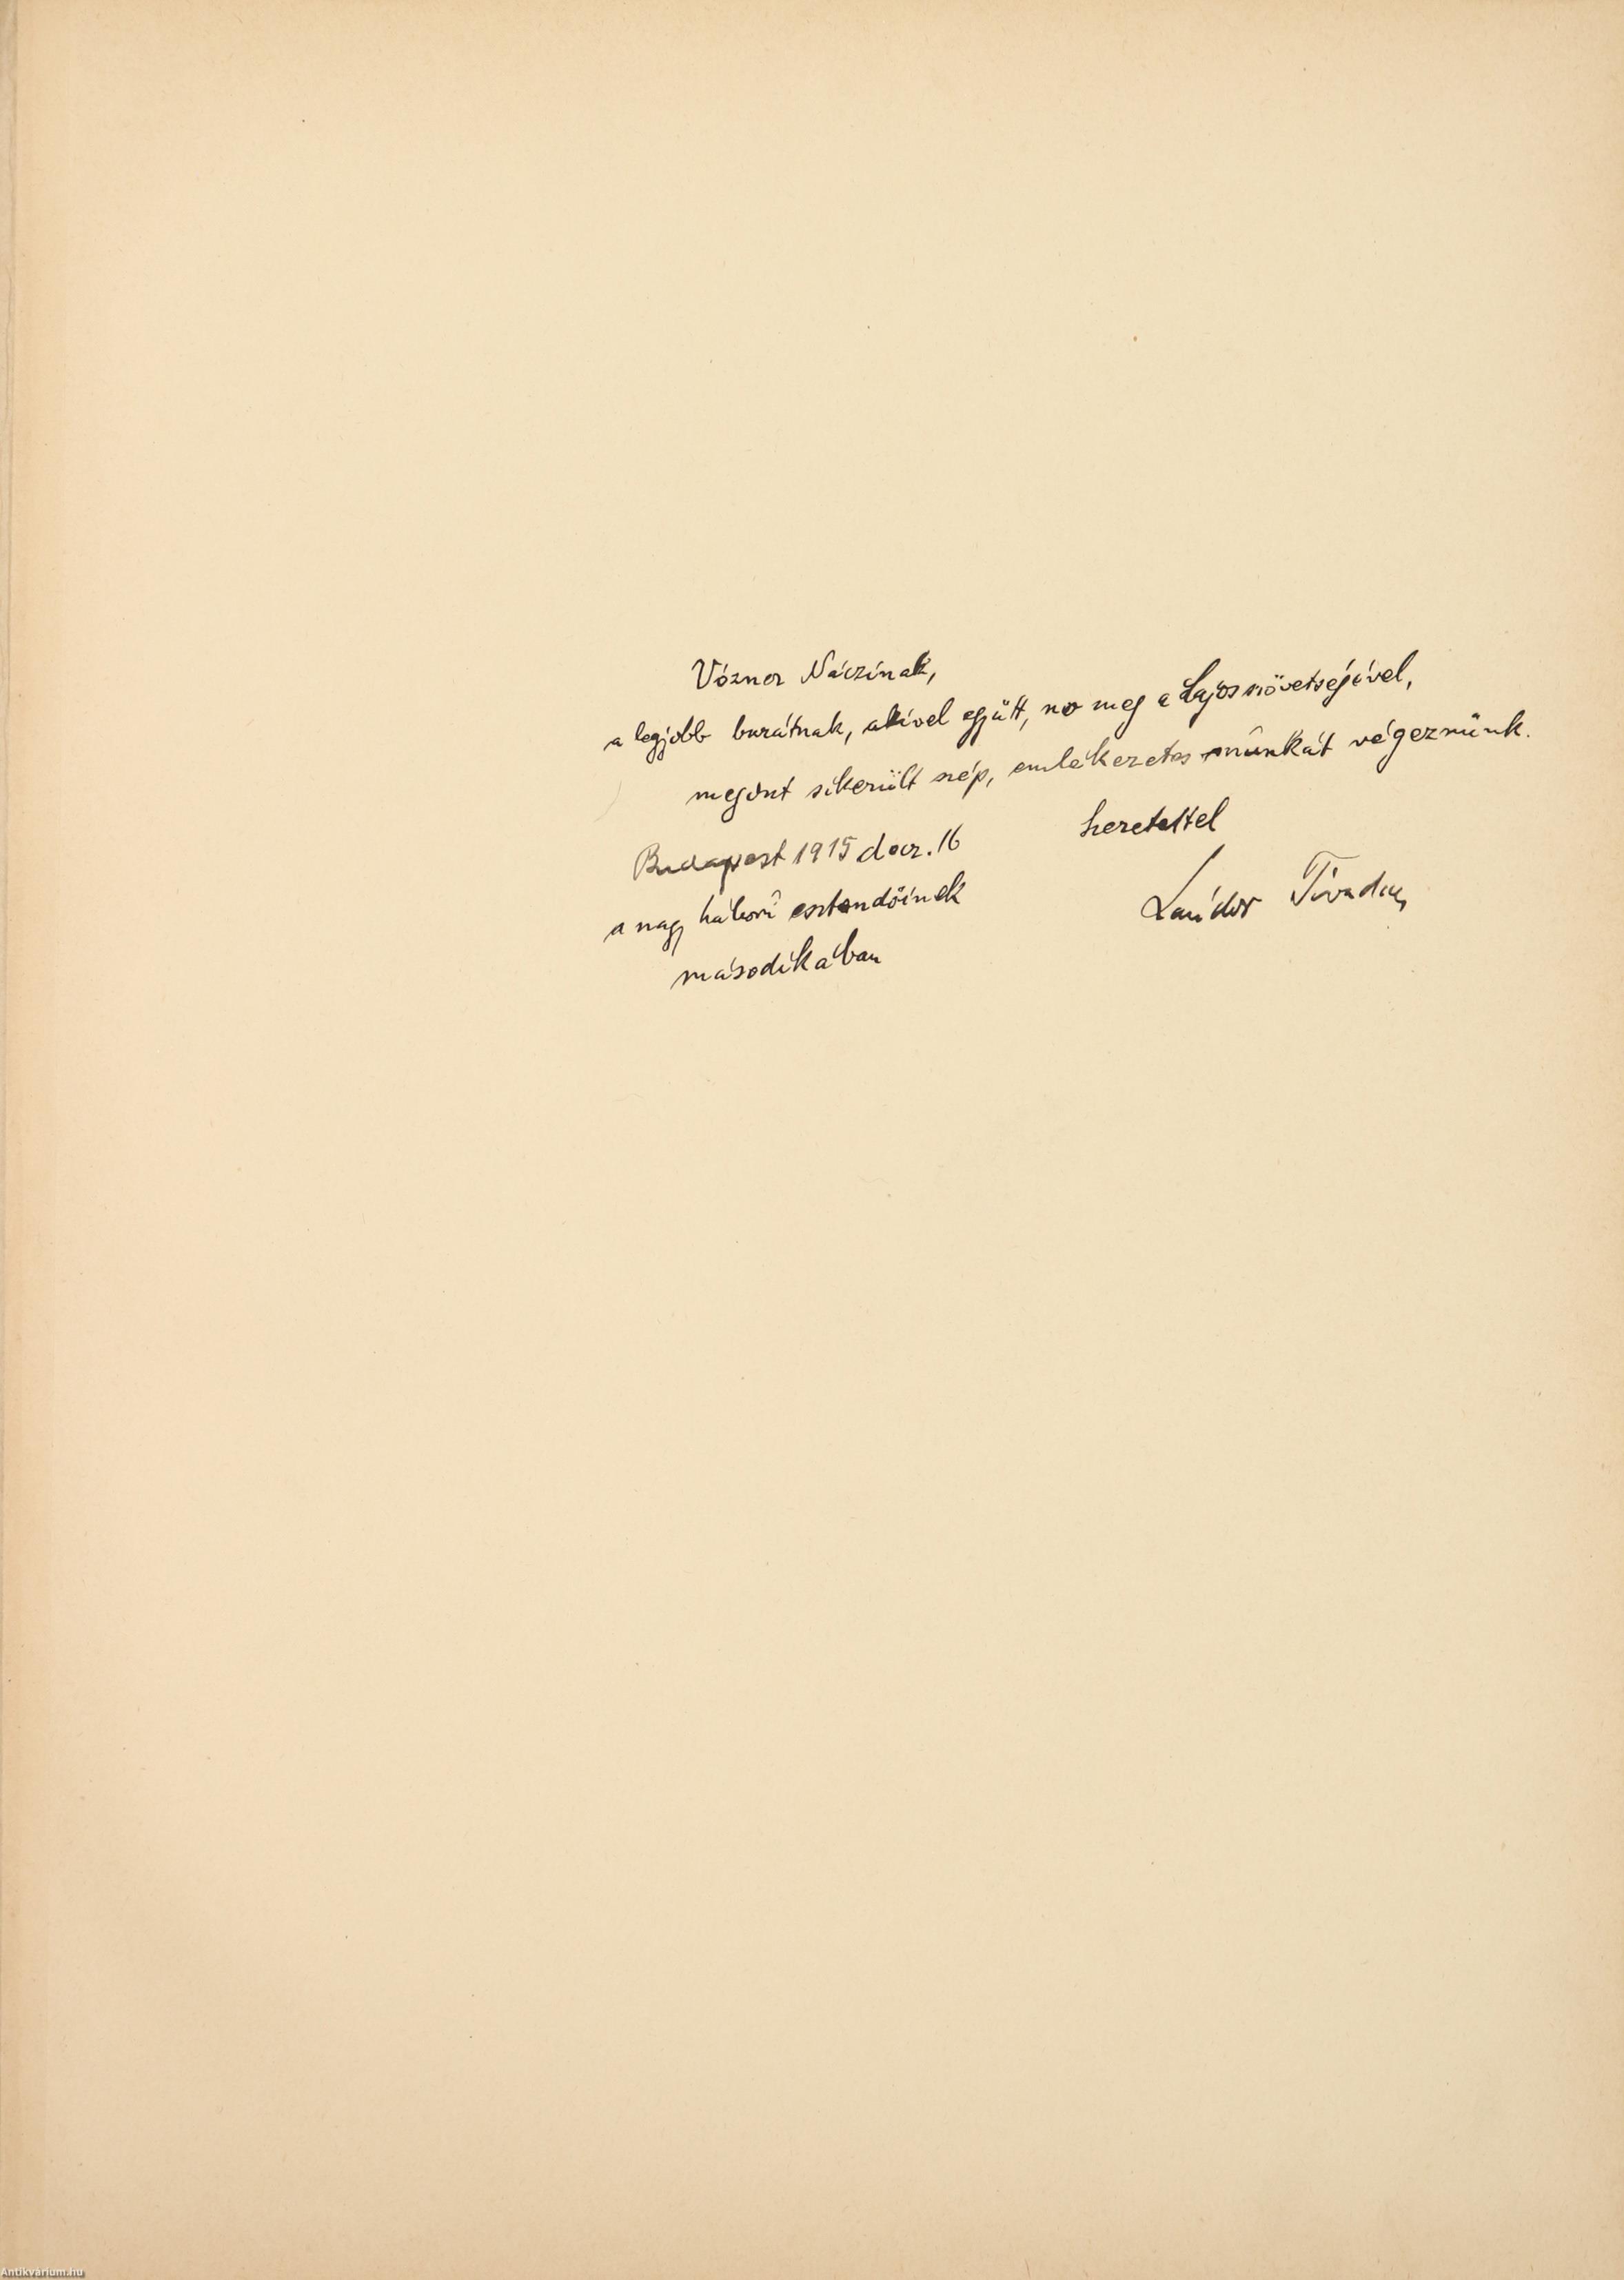 Vózner Náczinak,
a legjobb barátnak, akivel együtt, no meg a Lajos szövetségével,
megint sikerült szép, emlékezetes munkát végeznünk.
Budapest 1915 decz. 16
szeretettel
a nagy háború esztendőinek
Sándor Tivadar
másodikában
Antikvárium.hu